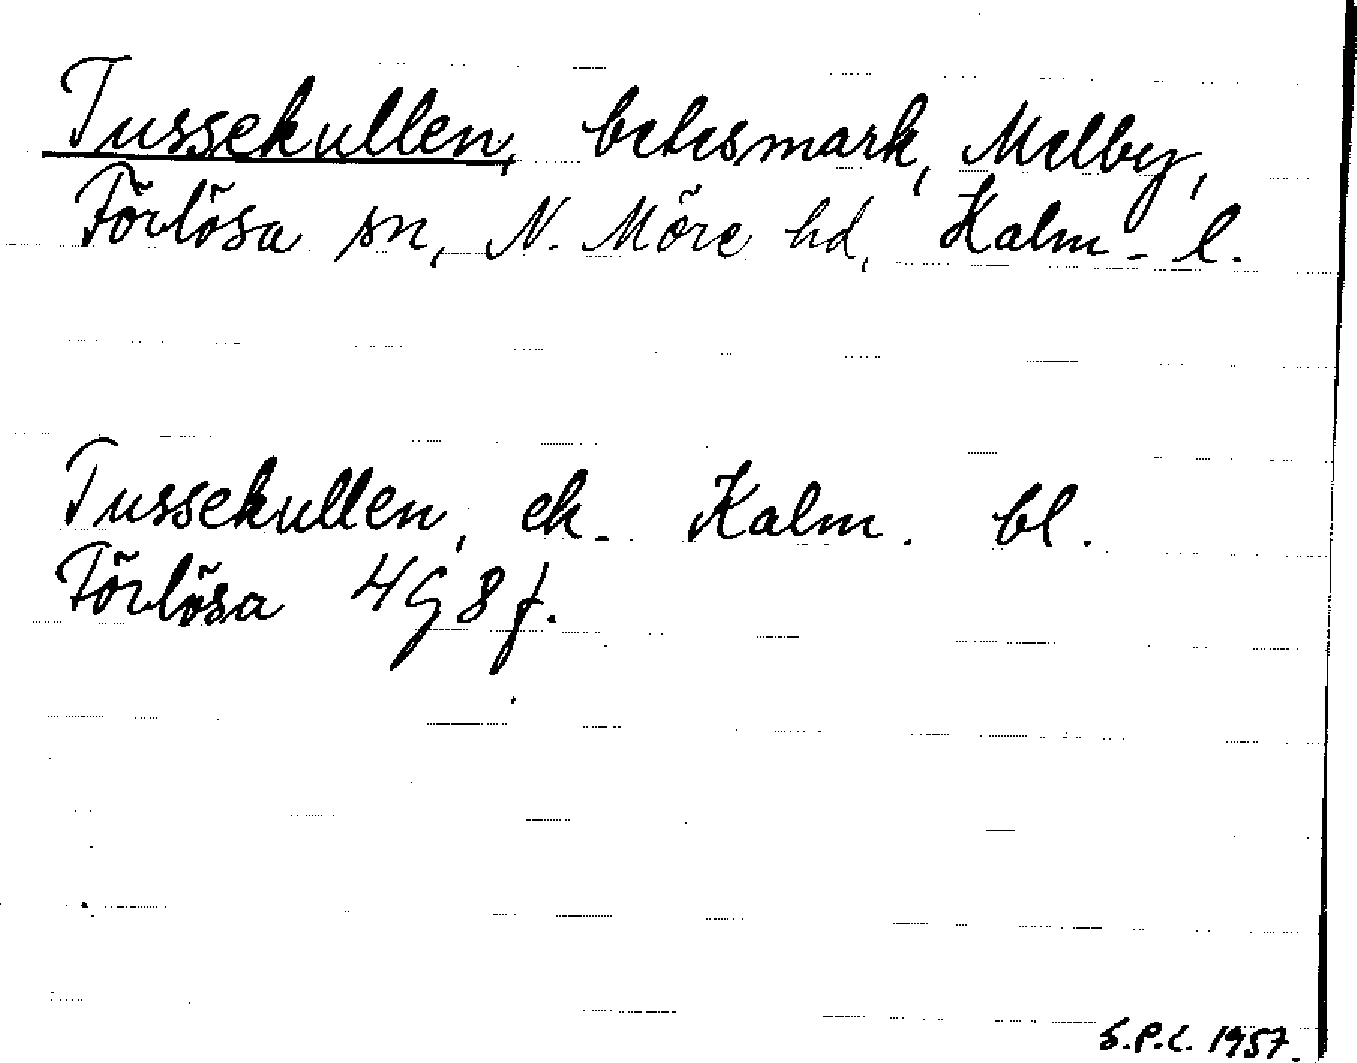 Tussekullen, betesmark, Melby,
Förlösa sn, N. Möre hd, Kalm. l.
Tussekullen, ek. Kalm. bl.
Förlösa 4G8f.
S.P.L. 1957.